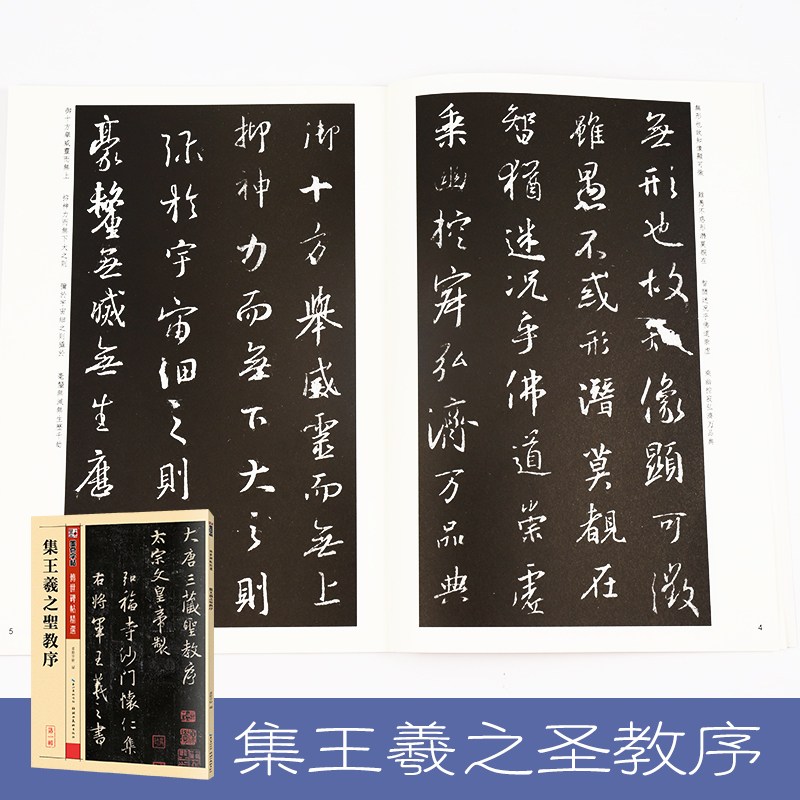 無形也故知像顯可徵　雖愚不惑形潛莫覩在　智猶迷況乎佛道崇虛　乘幽控寂弘濟万品典
無形也故知像顯可徵
雖愚不惑形潛莫覩在
智猶迷況乎佛道崇虛
乘幽控寂弘濟万品典
4
御十方舉威靈而無上
抑神力而無下大之則
弥於宇宙細之則
豪釐無滅無生歷
御十方舉威靈而無上　抑神力而無下大之則　彌於宇宙細之則攝於　毫釐無滅無生歷千劫
5
大唐三藏聖教序
太宗文皇帝製
弘福寺沙門懷仁集
右將軍王羲之書
墨点字帖
傳世碑帖精選
集王羲之聖教序
第一輯
集王羲之圣教序